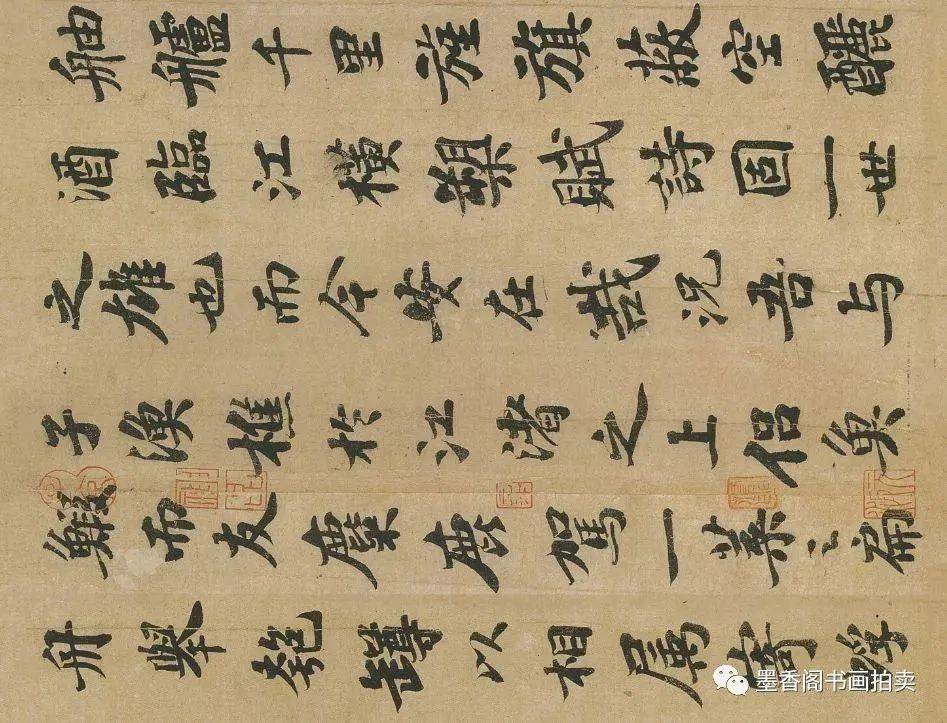 舳艫千里旌旗蔽空釃
酒臨江橫槊賦詩固一世
之雄也而今安在哉况吾与
子漁樵於江渚之上侣魚
鰕而友麋鹿駕一葉之扁
舟舉匏罇以相屬寄蜉
墨香阁书画拍卖